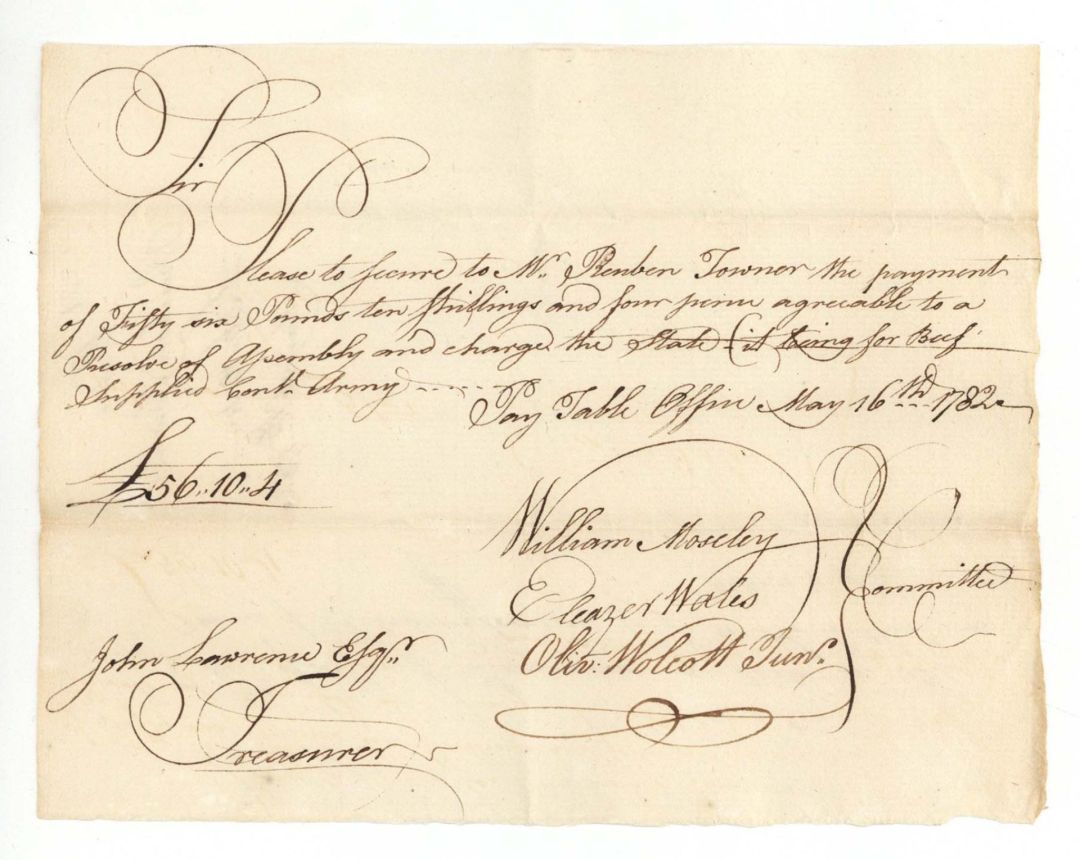 Sir
Please to secure to Mr. Reuben Towner the payment
of Fifty six Pounds ten Shillings and four penne agreeable to a
Resolve of Assembly and charge the State (it being for Beef
Supplied Cont.l Army)
Pay Table Office May 16th 1782
£56,,10,,4
William Moseley
Eleazer Wales
Committee
Oliv: Wolcott Junr.
John Lawrence Esqr.
Treasurer